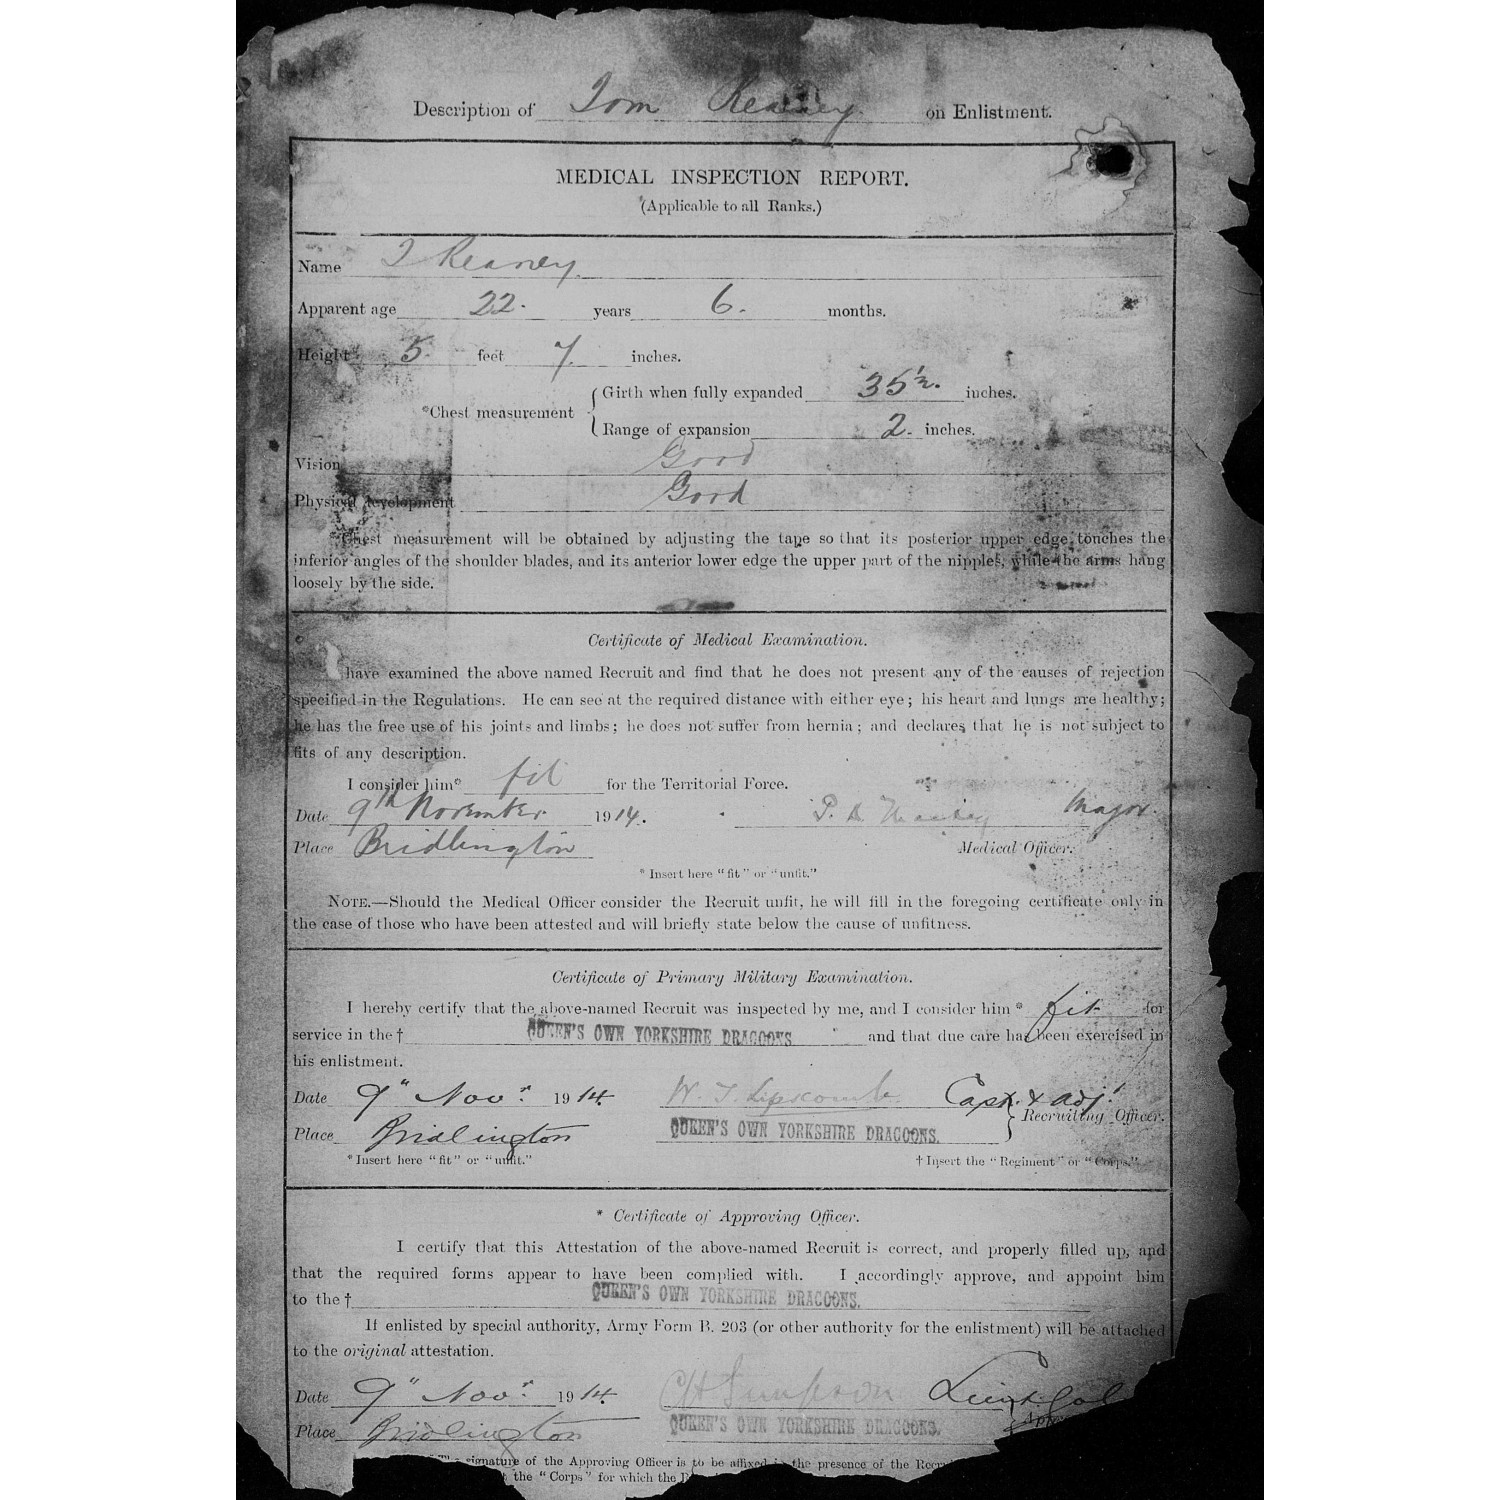 Description of Tom Reaney on Enlistment.
MEDICAL INSPECTION REPORT.
(Applicable to all Ranks.)
Name T Reaney.
Apparent age 22. years 6. months.
Height 5. feet 7. inches.
*Chest measurement
Girth when fully expanded 35½. inches.
Range of expansion 2. inches.
Vision Good
Physical development Good
*Chest measurement will be obtained by adjusting the tape so that its posterior upper edge touches the
inferior angles of the shoulder blades, and its anterior lower edge the upper part of the nipples, while the arms hang
loosely by the side.
Certificate of Medical Examination.
I have examined the above named Recruit and find that he does not present any of the causes of rejection
specified in the Regulations. He can see at the required distance with either eye; his heart and lungs are healthy;
he has the free use of his joints and limbs; he does not suffer from hernia; and declares that he is not subject to
fits of any description.
I consider him* fit for the Territorial Force.
Date 9th November 1914. Major.
Place Bridlington Medical Officer.
* Insert here "fit" or "unfit."
NOTE.—Should the Medical Officer consider the Recruit unfit, he will fill in the foregoing certificate only in
the case of those who have been attested and will briefly state below the cause of unfitness.
Certificate of Primary Military Examination.
I hereby certify that the above-named Recruit was inspected by me, and I consider him * fit for
service in the † QUEEN'S OWN YORKSHIRE DRAGOONS and that due care has been exercised in
his enlistment.
Date 9" Novr. 1914. W. T. Lipscomb Capt. & adjt
Recruiting Officer.
Place Bridlington QUEEN'S OWN YORKSHIRE DRAGOONS.
* Insert here "fit" or "unfit." † Insert the "Regiment" or "Corps."
* Certificate of Approving Officer.
I certify that this Attestation of the above-named Recruit is correct, and properly filled up, and
that the required forms appear to have been complied with. I accordingly approve, and appoint him
to the † QUEEN'S OWN YORKSHIRE DRAGOONS.
If enlisted by special authority, Army Form B. 203 (or other authority for the enlistment) will be attached
to the original attestation.
Date 9" Novr. 1914. Simpson Lieut. Col
Place Bridlington QUEEN'S OWN YORKSHIRE DRAGOONS.
signature of the Approving Officer is to be affixed in the presence of the
the "Corps" for which the